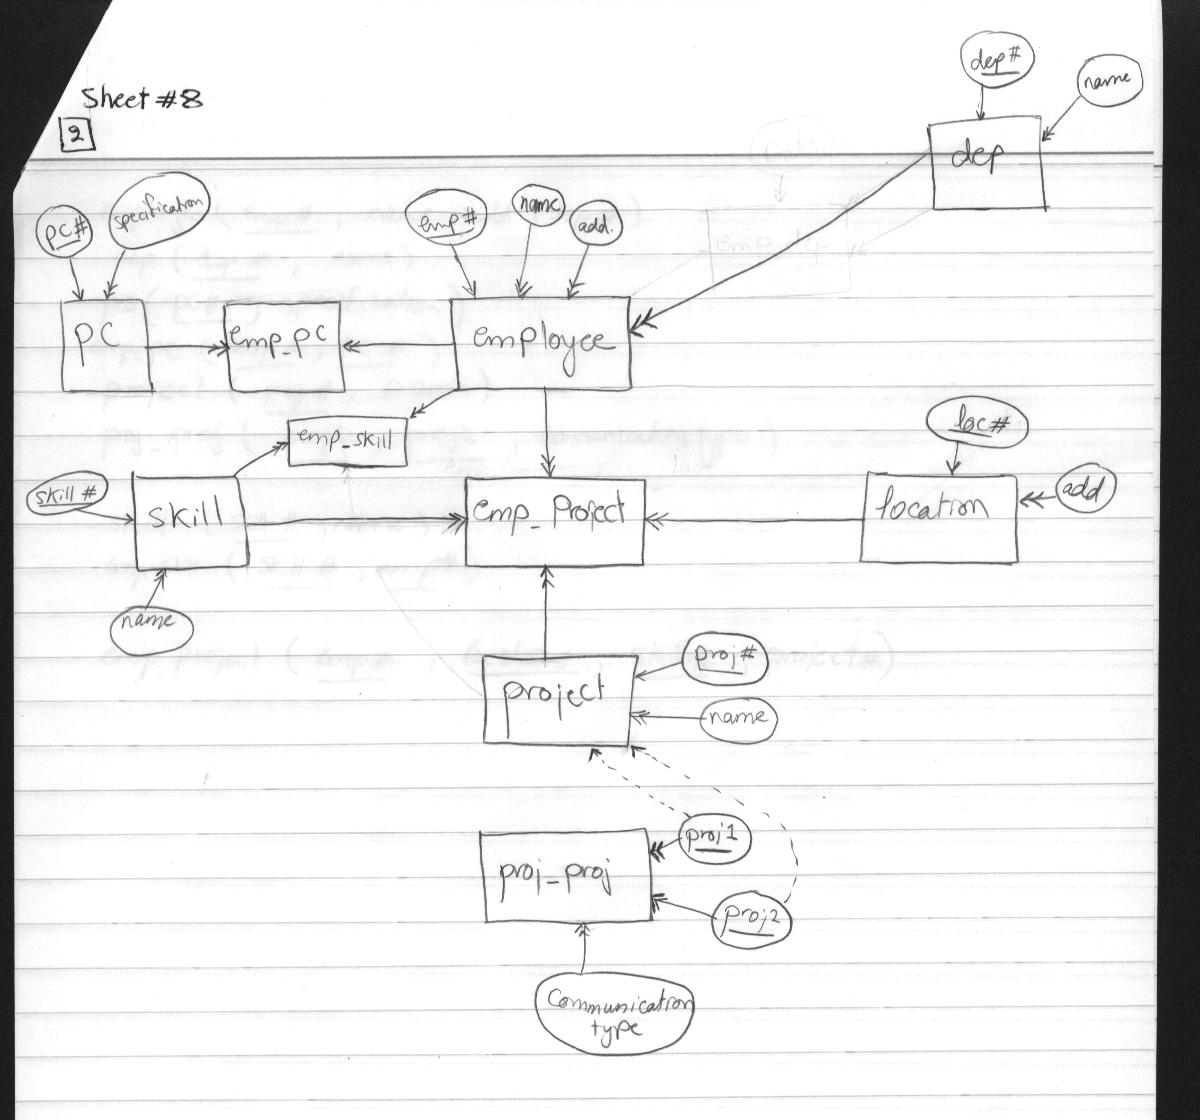 Sheet #8
2
dep#
name
dep
pc#
specification
emp#
name
add.
PC
emp_pc
employee
emp_skill
loc#
skill#
skill
emp_Project
location
add
name
project
proj#
name
proj_proj
proj1
proj2
Communication
type